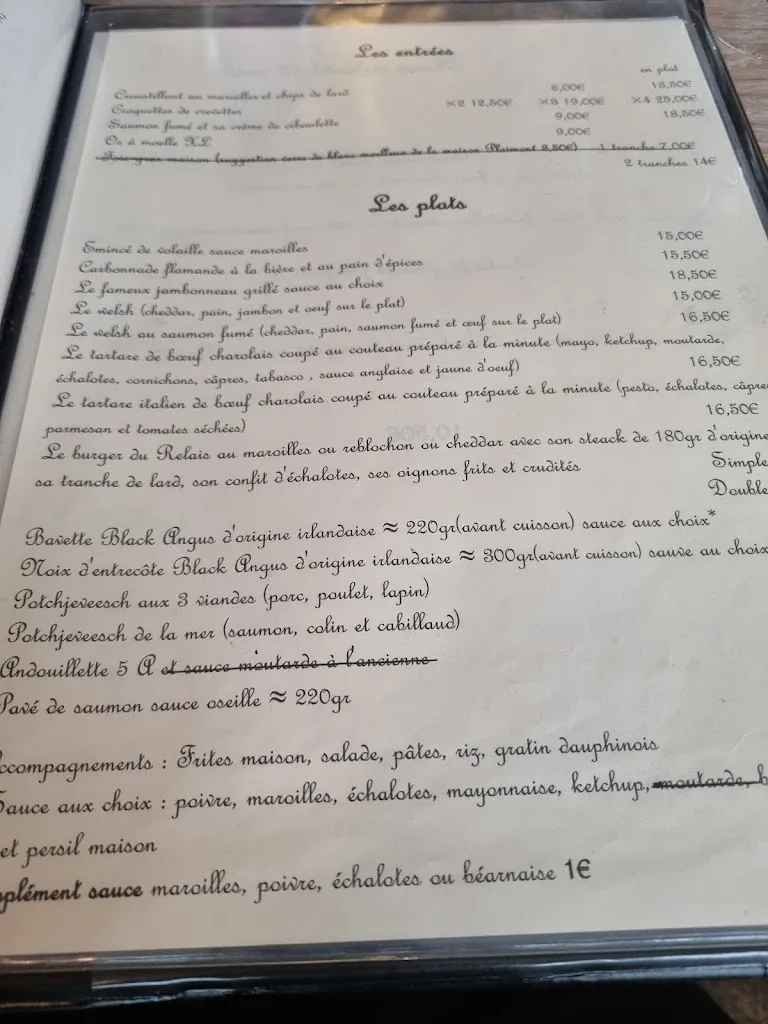 Les entrées
en plat
Croustillant au maroilles et chips de lard 6,00€ 13,50€
Croquettes de crevettes x2 12,50€ x3 19,00€ x4 25,00€
Saumon fumé et sa crème de ciboulette 9,00€ 18,50€
Os à moelle XL 9,00€
Foie-gras maison (suggestion verre de blanc moelleux de la maison Plaimont 3,50€) 1 tranche 7,00€
2 tranches 14€
Les plats
Emincé de volaille sauce maroilles 15,00€
Carbonnade flamande à la bière et au pain d'épices 15,50€
Le fameux jambonneau grillé sauce au choix 18,50€
Le welsh (cheddar, pain, jambon et oeuf sur le plat) 15,00€
Le welsh au saumon fumé (cheddar, pain, saumon fumé et œuf sur le plat) 16,50€
Le tartare de bœuf charolais coupé au couteau préparé à la minute (mayo, ketchup, moutarde,
échalotes, cornichons, câpres, tabasco , sauce anglaise et jaune d'oeuf) 16,50€
Le tartare italien de bœuf charolais coupé au couteau préparé à la minute (pesto, échalotes, câpre
parmesan et tomates séchées) 16,50€
Le burger du Relais au maroilles ou reblochon ou cheddar avec son steack de 180gr d'origine
sa tranche de lard, son confit d'échalotes, ses oignons frits et crudités Simple
Double
Bavette Black Angus d'origine irlandaise ≈ 220gr(avant cuisson) sauce aux choix*
Noix d'entrecôte Black Angus d'origine irlandaise ≈ 300gr(avant cuisson) sauve au choix
Potchjeveesch aux 3 viandes (porc, poulet, lapin)
Potchjeveesch de la mer (saumon, colin et cabillaud)
Andouillette 5 A et sauce moutarde à l'ancienne
Pavé de saumon sauce oseille ≈ 220gr
ccompagnements : Frites maison, salade, pâtes, riz, gratin dauphinois
Sauce aux choix : poivre, maroilles, échalotes, mayonnaise, ketchup, moutarde, b
et persil maison
pplément sauce maroilles, poivre, échalotes ou béarnaise 1€